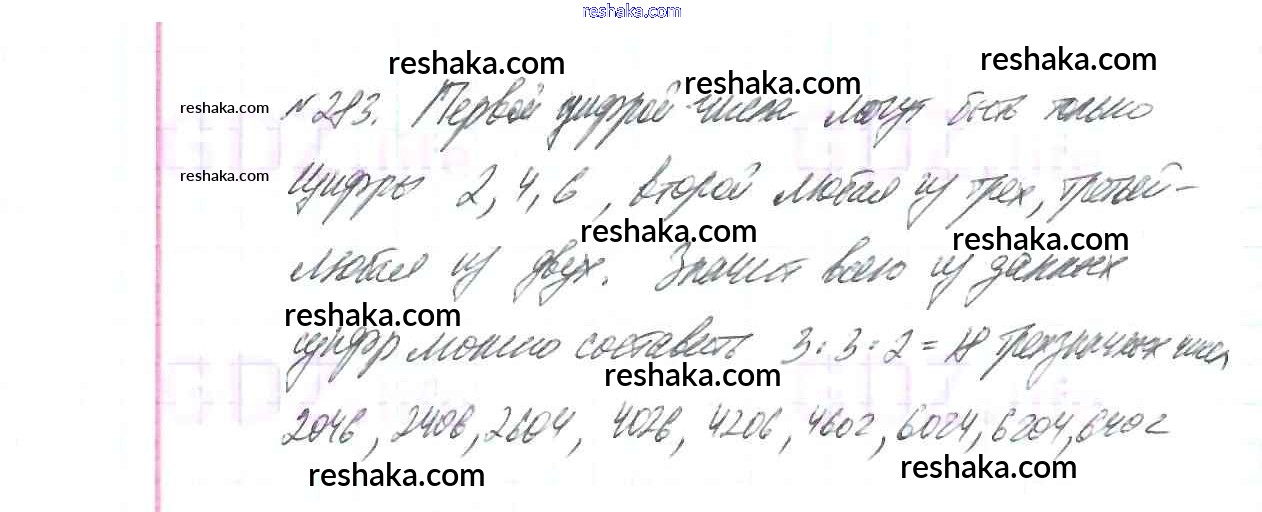 reshaka.com
reshaka.com
reshaka.com
reshaka.com
reshaka.com
№ 283. Первой цифрой числа могут быть только
reshaka.com
цифры 2, 4, 6, второй любая из трех, третьей -
reshaka.com
reshaka.com
любая из двух. Значит всего из данных
reshaka.com
цифр можно составить 3 : 3 : 2 = 18 трехзначных чисел
reshaka.com
2046, 2406, 2604, 4026, 4206, 4602, 6024, 6204, 6402
reshaka.com
reshaka.com